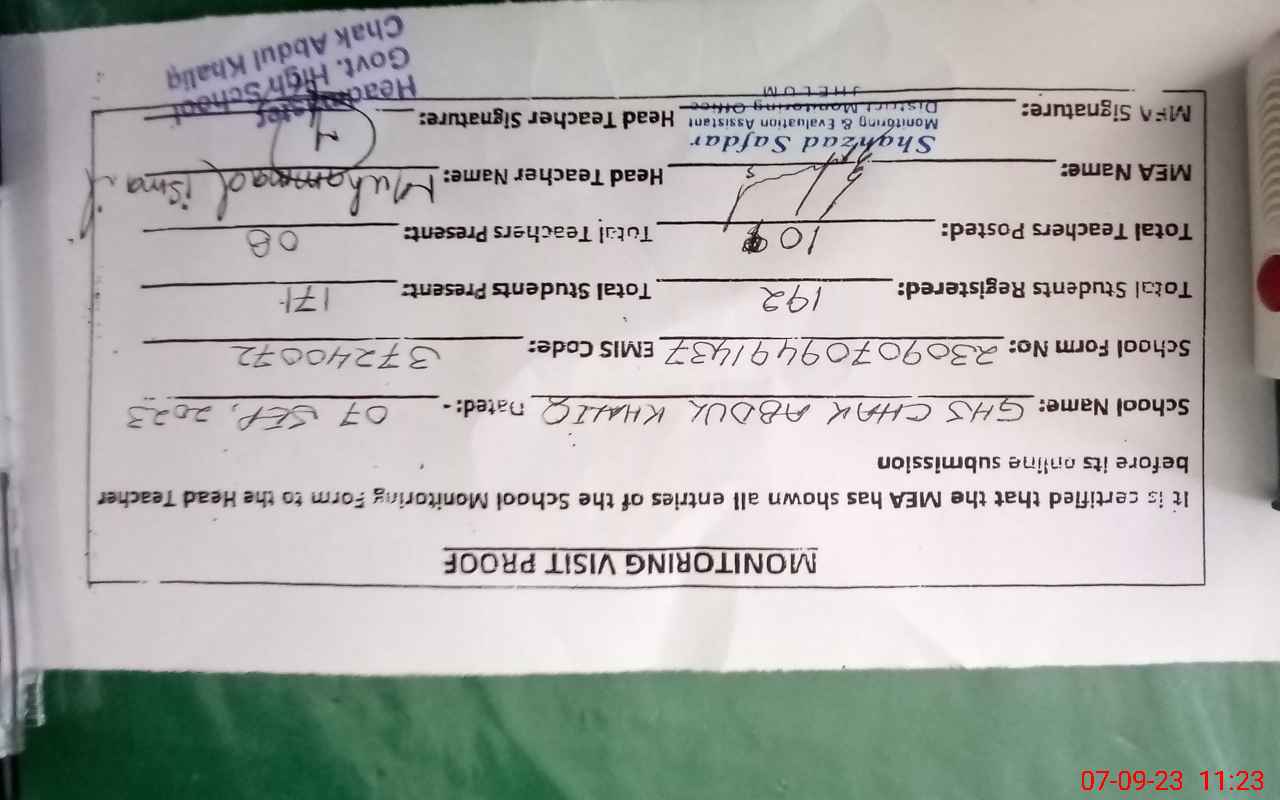 MONITORING VISIT PROOF
It is certified that the MEA has shown all entries of the School Monitoring Form to the Head Teacher
before its online submission
School Name: GHS CHAK ABDUL KHALIQ Dated:- 07 SEP, 2023
School Form No: 23090709491437 EMIS Code: 37240072
Total Students Registered: 192 Total Students Present: 171
Total Teachers Posted: 10 Total Teachers Present: 08
MEA Name: Head Teacher Name: Muhammad ismail
Shahzad Safdar
Monitoring & Evaluation Assistant
District Monitoring Office
JHELUM
MEA Signature: Head Teacher Signature:
Headmaster
Govt. High School
Chak Abdul Khaliq
07-09-23 11:23